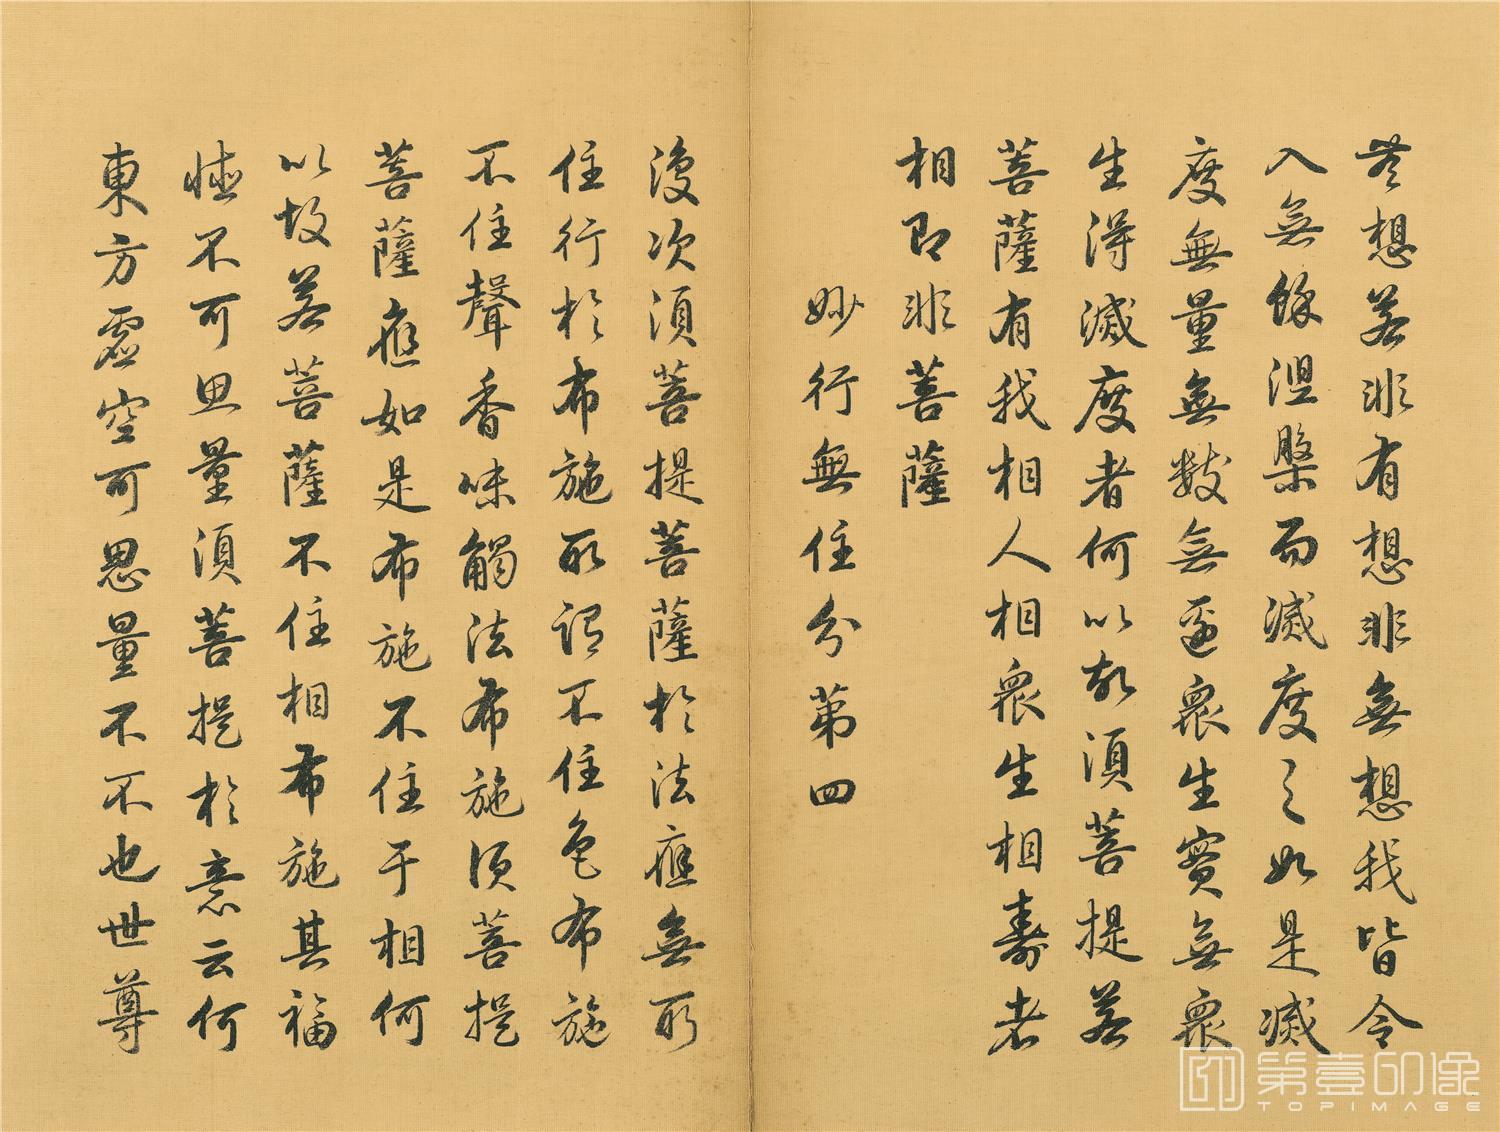 無想若非有想非無想我皆令
入無餘涅槃而滅度之如是滅
度無量無數無邊衆生實無衆
生得滅度者何以故須菩提若
菩薩有我相人相衆生相壽者
相即非菩薩
妙行無住分第四
復次須菩提菩薩於法應無所
住行於布施所謂不住色布施
不住聲香味觸法布施須菩提
菩薩應如是布施不住于相何
以故若菩薩不住相布施其福
德不可思量須菩提於意云何
東方虛空可思量不不也世尊
第壹印像
TOPIMAGE